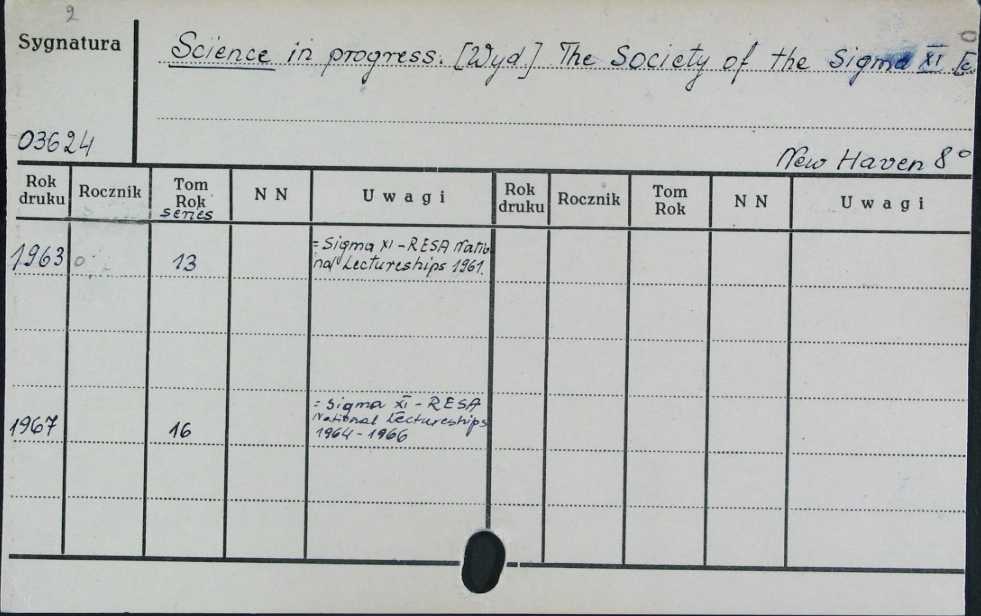 2
Sygnatura
Science in progress. [Wyd.] The Society of the Sigma XI
03624
New Haven 8°
Rok druku Rocznik Tom Rok series N N Uwagi Rok druku Rocznik Tom Rok N N Uwagi
1963 13 = Sigma XI - RESA Natio
nal Lectureships 1961.
1967 16 = Sigma XI - RESA
National Lectureships
1964 - 1966